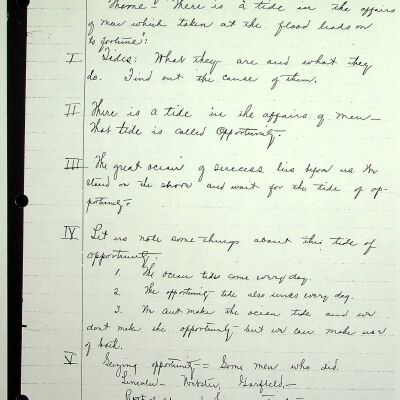 Theme: "There is a tide in the affairs
of men which taken at the flood leads on
to fortune":
I Tides: What they are and what they
do. Find out the cause of them.
II There is a tide in the affairs of men—
that tide is called Opportunity.
III The great ocean of success lies before us We
stand on the shore and wait for the tide of op-
portunity.
IV Let us note some things about this tide of
opportunity.
1. The ocean tides come every day.
2. The opportunity tide also every day.
3. We dont make the ocean tide and we
dont make the opportunity but we can make use
of both.
V Seizing opportunity = Some men who did.
Lincoln — Webster, Garfield.—